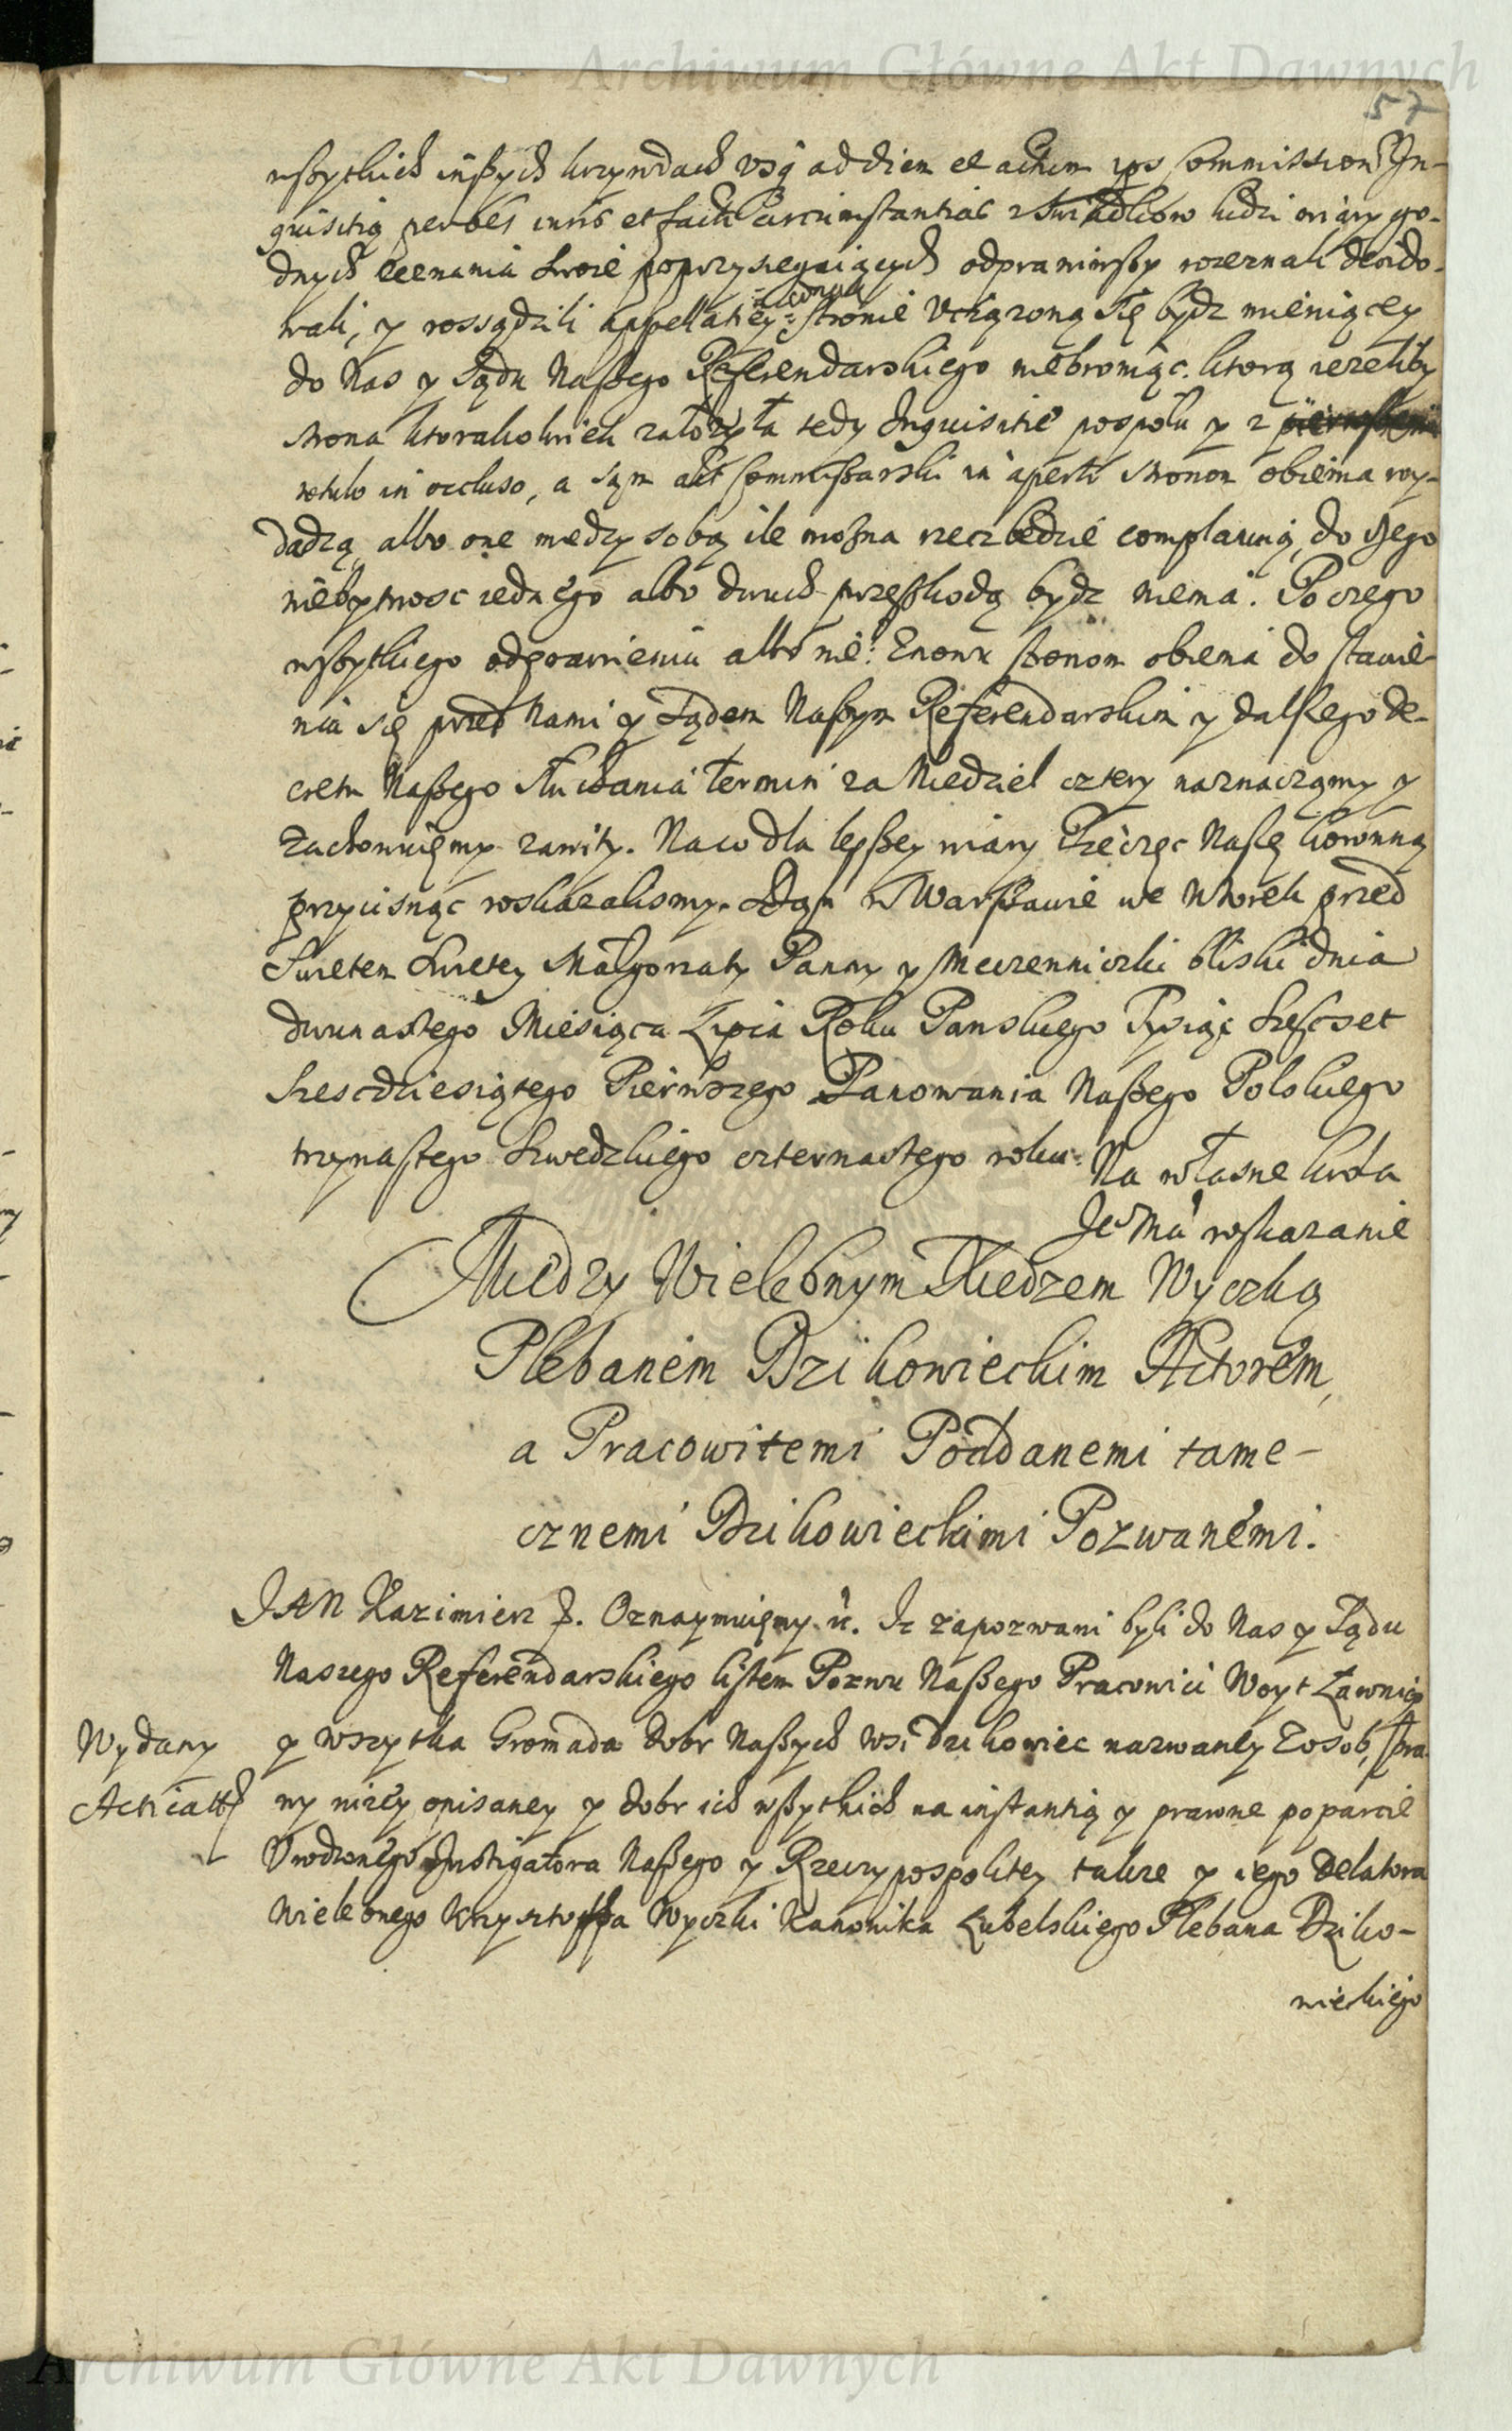 Archiwum Główne Akt Dawnych
57
wszytkich inszych krzywdach usq ad diem et actum ips Commissions In-
quisitią per oes iuris et facti Circumstantias z Swiadkow ludzi wiary go-
dnych zeznania swoie poprzysiegaiących odprawiwszy rozeznali decido-
wali, y rossądzili appellatiey stronie Uciązoną się bydz mieniącey
do Nas y Sądu Naszego Referendarskiego niebroniąc. ktorą iezeliby
strona ktorakolwiek załozyła tedy Inquisitie pospołu y z
rotulo in occluso, a sąm akt Commissarski in aperti stronom obiema wy-
dadzą albo one miedzy sobą ile mozna rzecz bedzie complanuią, do czego
niebytnosc iednego albo dwuch przeszkodą bydz niema. Po czego
wszytkiego odprawieniu albo nie: Znowu stronom obiema do stawie-
nia się przed Nami y Sądem Naszym Referendarskim y dalszego de-
cretu Naszego słuchania termin za Niedziel cztery naznaczamy y
zachowuięmy zawity. Na co dla lepszey wiary Pieczęc Naszę Koronną
przycisnąc roskazalismy. Dan w Warszawie we Wtorek przed
Swietem Swietey Małgorzaty Panny y Meczenniczki bliski dnia
dwunastego Miesiąca Lipca Roku Panskiego Tysiąc Szescset
Szescdziesiątego Pierwszego Panowania Naszego Polskiego
trzynastego Szwedzkiego czternastego roku. Na własne Krola
Je Mci roskazanie
Miedzy Wielebnym Xiedzem Wyczką
Plebanem Dzikowieckim Actorem,
a Pracowitemi Poddanemi tame-
cznemi Dzikowieckimi Pozwanemi.
JAN Kazimierz J. Oznaymuięmy Iz zapozwani byli do Nas y Sądu
Naszego Referendarskiego listem Pozwu Naszego Pracowici Woyt Ławnicy
Wydany
Acticatt
y wszytka Gromada dobr Naszych wsi Dzikowiec nazwaney Zosob, spra
wy nizey opisaney y dobr ich wszytkich na instantią y prawne poparcie
Urodzonego Instigatora Naszego y Rzeczypospolitey takze y iego Delatora
Wielebnego Krzysztoffa Wyczki Kanonika Lubelskiego Plebana Dziko-
wieckiego
Archiwum Główne Akt Dawnych